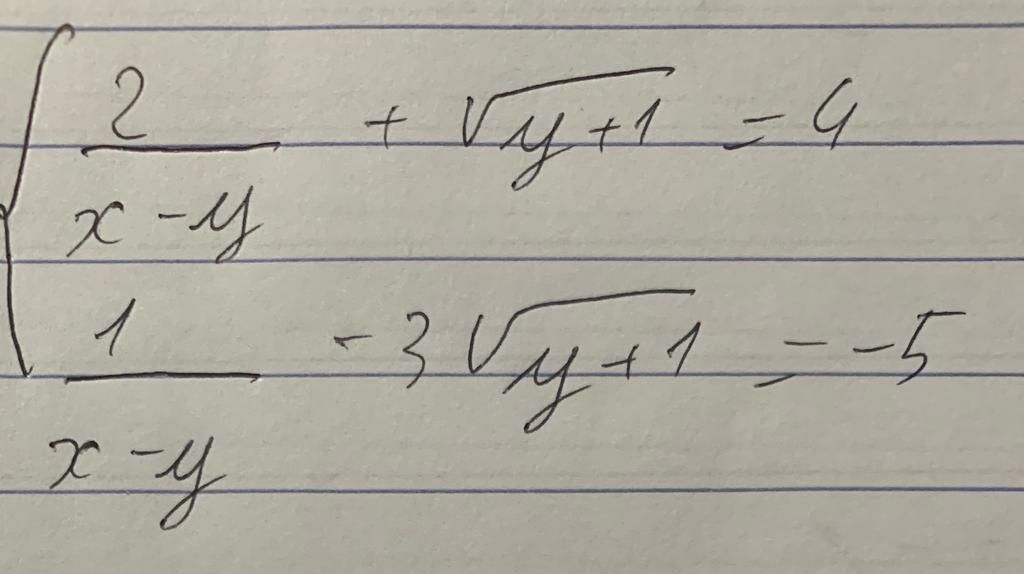 2/(x-y) + √(y+1) = 4
1/(x-y) - 3√(y+1) = -5